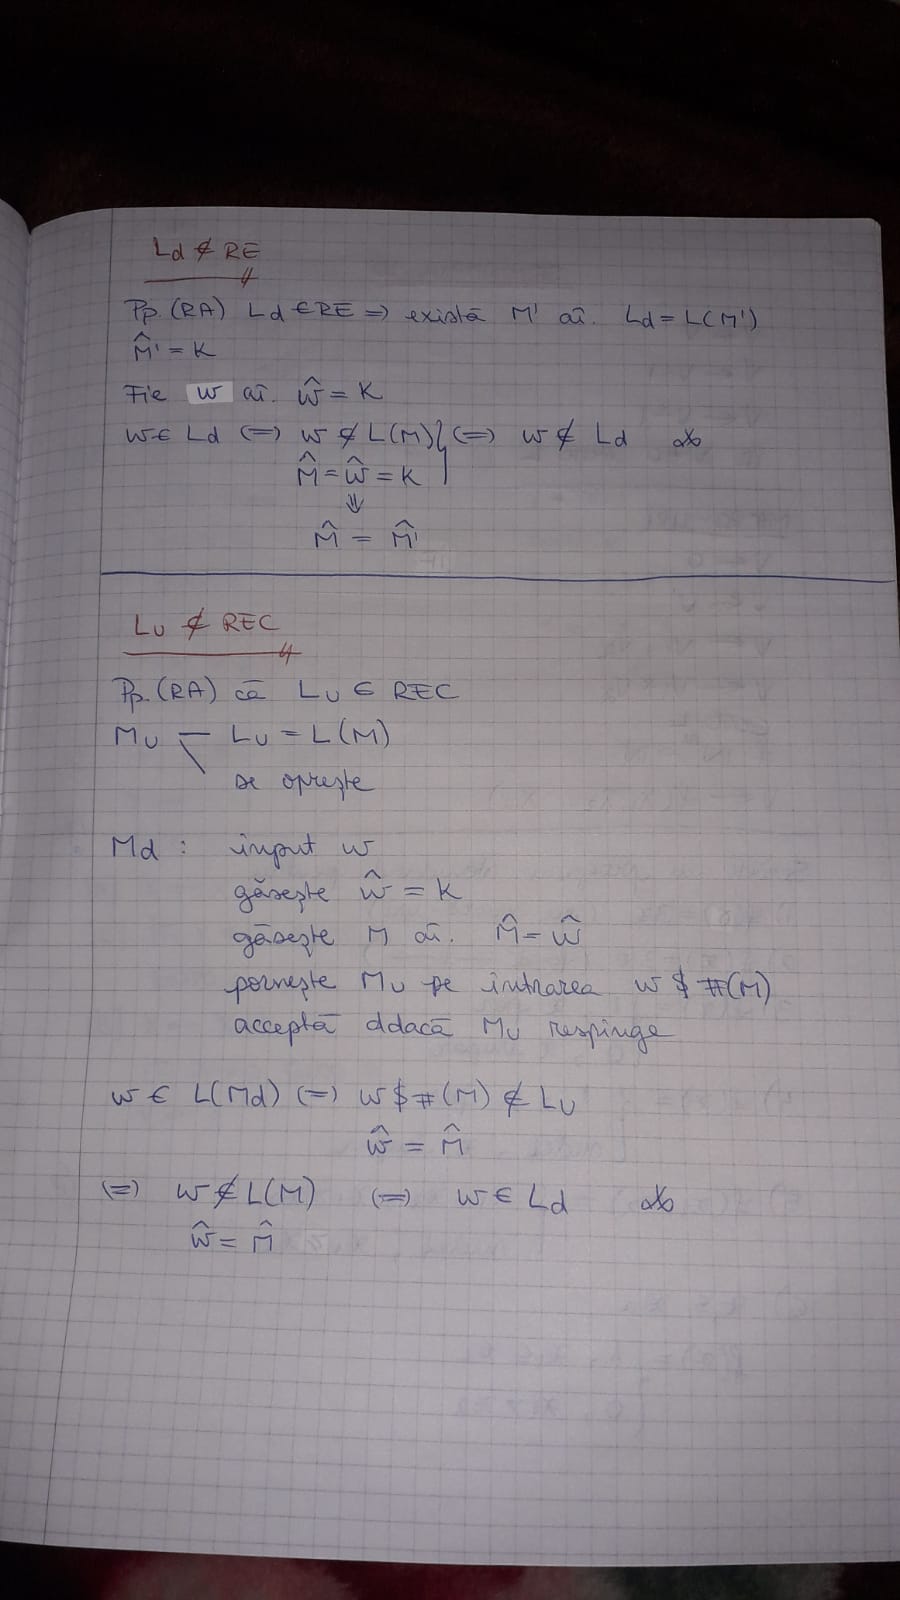 Ld ∉ RE
Pp. (RA) Ld ∈ RE => există M' aî. Ld = L(M')
M̂' = K
Fie w aî. ŵ = K
w ∈ Ld (=) w ∉ L(M) (=) w ∉ Ld
M̂ = ŵ = K
⇓
M̂ = M̂'
Lu ∉ REC
Pp. (RA) că Lu ∈ REC
Mu Lu = L(M)
se oprește
Md : input w
găsește ŵ = K
găsește M aî. M̂ = ŵ
pornește Mu pe intrarea w $ #(M)
acceptă ddacă Mu respinge
w ∈ L(Md) (=) w $ #(M) ∉ Lu
ŵ = M̂
(=) w ∉ L(M) (=) w ∈ Ld
ŵ = M̂